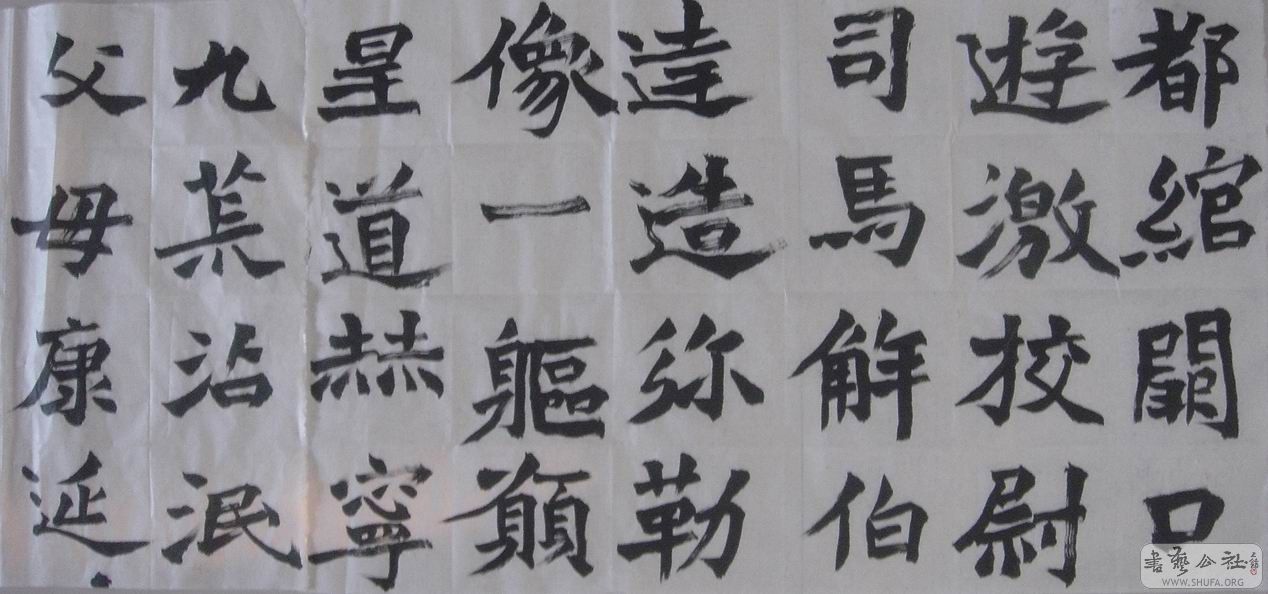 都綰闕口
遊激校尉
司馬解伯
達造弥勒
像一軀願
皇道赫寧
九荒沾泯
父母康延
書藝公社
WWW.SHUFA.ORG